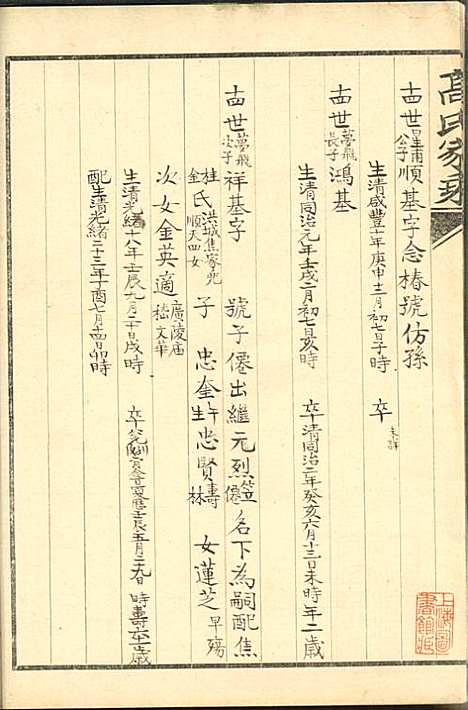 高氏家乘
十四世星甫公子順基字念椿號仿孫
生清咸豐十年庚申十二月初七日子時 卒未詳
十四世夢飛長子鴻基
生清同治元年壬戌二月初七日亥時 卒清同治二年癸亥六月十三日未時年二歲
十四世夢飛次子祥基字 號子僊出繼元烈笠僊名下為嗣配焦
桂金氏洪城焦家兜順夫四女 子 忠奎 忠賢壽林 女蓮芝早殤
次女金英適廣陵庙嵇文華
生清光緒十八年壬辰九月二十日戌時 卒 壬辰五月二十九日 時壽 歲
配生清光緒二十三年丁酉七月十四日卯時
上海圖書館藏